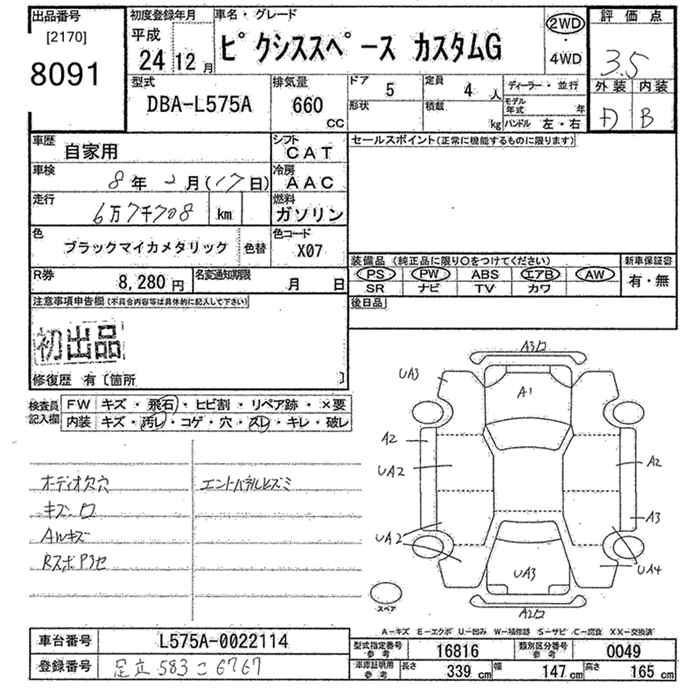 出品番号
[2170]
8091
初度登録年月
平成
24 12 月
車名・グレード
ピクシススペース カスタムG
2WD
・
4WD
評価点
3.5
外装 内装
D B
型式
DBA-L575A
排気量
660
CC
ドア 5
定員 4 人
形状
積載 kg
ディーラー・並行
モデル年式 年
ハンドル 左・右
車歴
自家用
シフト
CAT
車検
8年 月(17日)
冷房
AAC
走行
6万7千708 km
燃料
ガソリン
色
ブラックマイカメタリック
色替
色コード
X07
R券
8,280円
名変通知期限
月 日
セールスポイント(正常に機能するものに限ります)
装備品 (純正品に限り○をつけてください)
PS PW ABS エアB AW
SR ナビ TV カワ
新車保証書
有・無
後日品
注意事項申告欄(不具合内容等は具体的に記入して下さい)
初出品
修復歴 有〔箇所 〕
検査員記入欄
FW キズ・飛石・ヒビ割・リペア跡・×要
内装 キズ・汚レ・コゲ・穴・スレ・キレ・破レ
オーディオ欠穴
キズ
AWキズ
エントパネルヒズミ
A3
UA3
A1
A2
UA2
A2
UA2
A3
UA4
UA3
A2
スペア
A-キズ E-エクボ U-凹み W-補修跡 S-サビ C-腐食 XX-交換済
車台番号
L575A-0022114
登録番号
足立 583 こ 6767
型式指定番号 参考
16816
類別区分番号 参考
0049
車庫証明用 参考
長さ 339 cm
幅 147 cm
高さ 165 cm